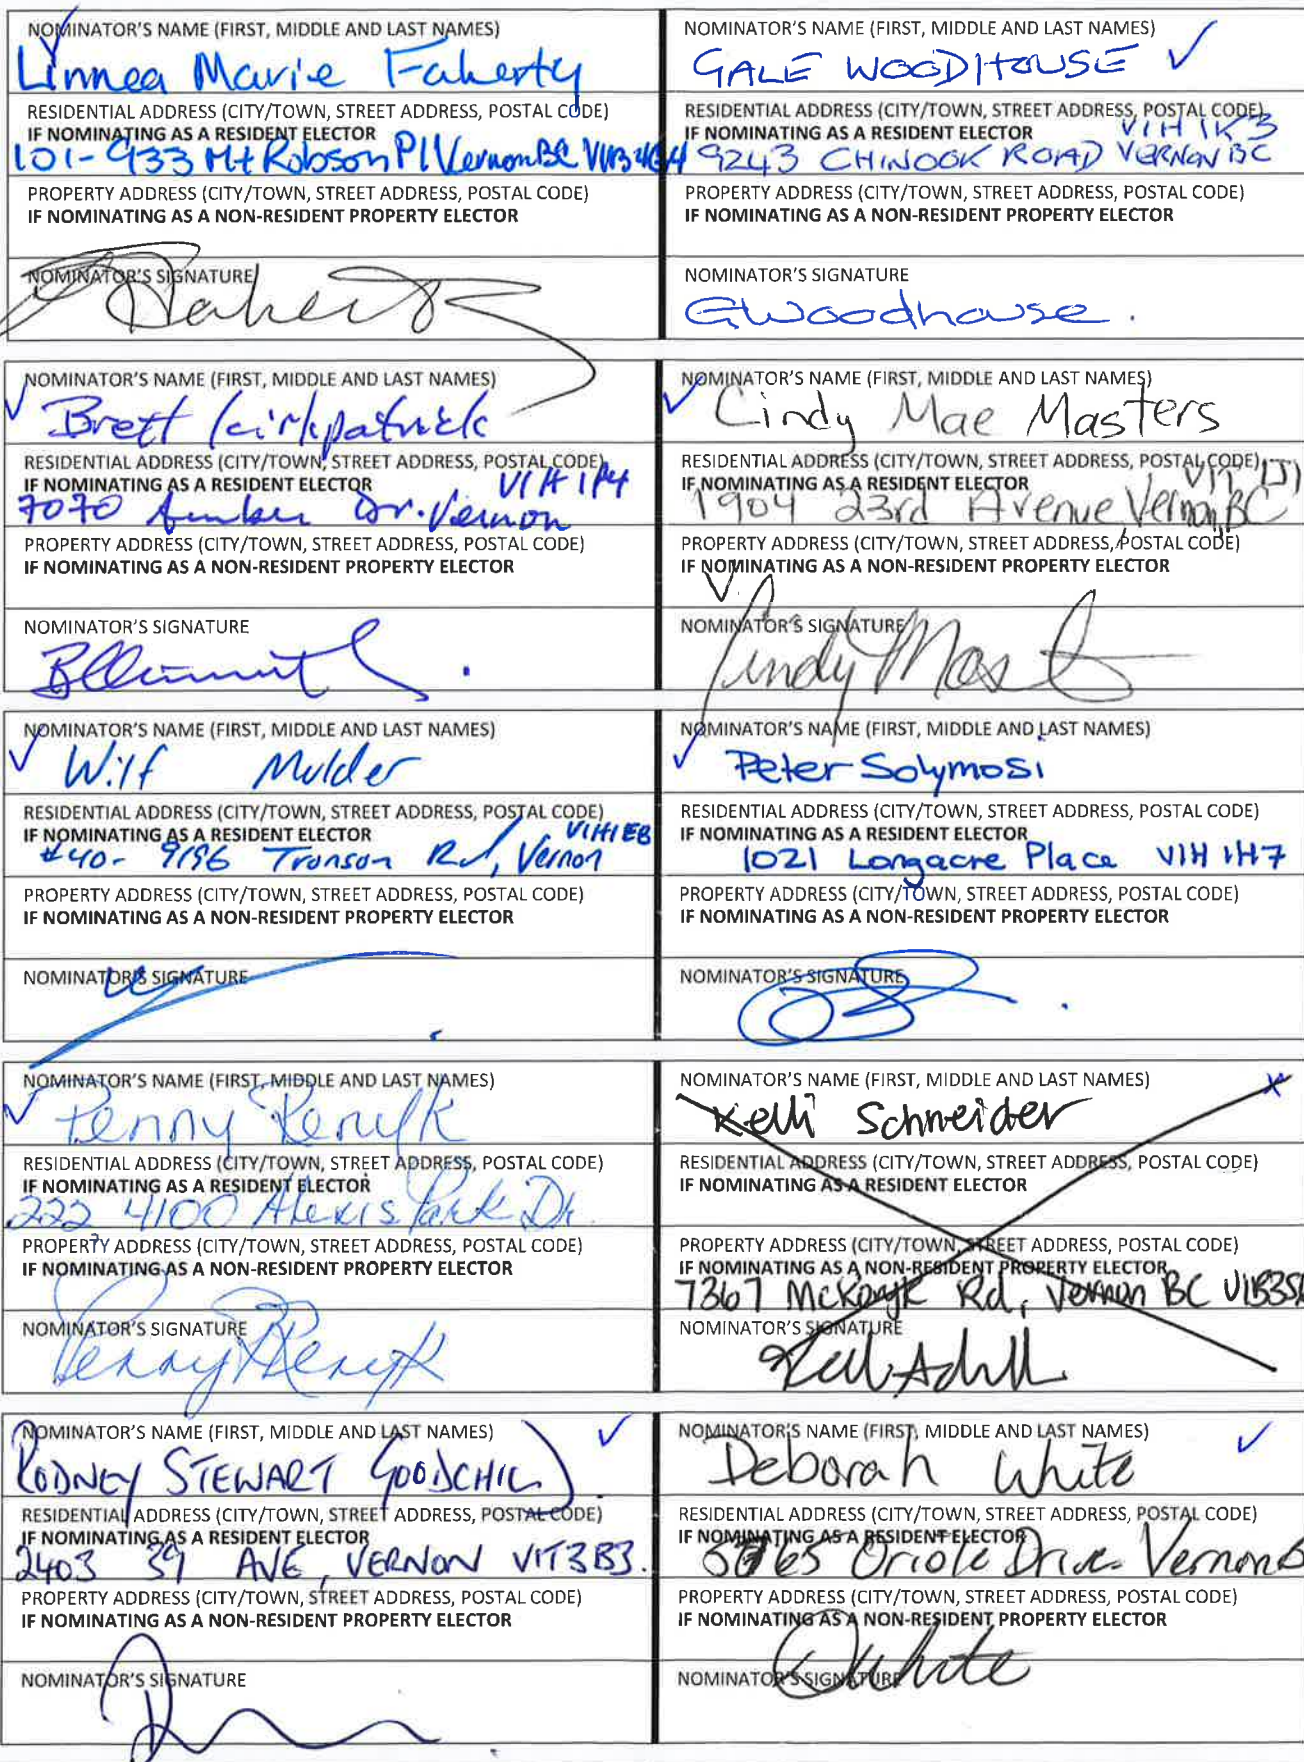 NOMINATOR'S NAME (FIRST, MIDDLE AND LAST NAMES)
Linnea Marie Faherty
RESIDENTIAL ADDRESS (CITY/TOWN, STREET ADDRESS, POSTAL CODE)
IF NOMINATING AS A RESIDENT ELECTOR
101-933 Mt Robson Pl Vernon BC
PROPERTY ADDRESS (CITY/TOWN, STREET ADDRESS, POSTAL CODE)
IF NOMINATING AS A NON-RESIDENT PROPERTY ELECTOR
NOMINATOR'S SIGNATURE
Faherty
NOMINATOR'S NAME (FIRST, MIDDLE AND LAST NAMES)
GALE WOODHOUSE ✓
RESIDENTIAL ADDRESS (CITY/TOWN, STREET ADDRESS, POSTAL CODE)
IF NOMINATING AS A RESIDENT ELECTOR
V1H 1K3
9243 CHINOOK ROAD VERNON BC
PROPERTY ADDRESS (CITY/TOWN, STREET ADDRESS, POSTAL CODE)
IF NOMINATING AS A NON-RESIDENT PROPERTY ELECTOR
NOMINATOR'S SIGNATURE
GWoodhouse.
NOMINATOR'S NAME (FIRST, MIDDLE AND LAST NAMES)
✓ Brett Kirkpatrick
RESIDENTIAL ADDRESS (CITY/TOWN, STREET ADDRESS, POSTAL CODE)
IF NOMINATING AS A RESIDENT ELECTOR
V1H 1P4
7070 Dr. Vernon
PROPERTY ADDRESS (CITY/TOWN, STREET ADDRESS, POSTAL CODE)
IF NOMINATING AS A NON-RESIDENT PROPERTY ELECTOR
NOMINATOR'S SIGNATURE
NOMINATOR'S NAME (FIRST, MIDDLE AND LAST NAMES)
✓ Cindy Mae Masters
RESIDENTIAL ADDRESS (CITY/TOWN, STREET ADDRESS, POSTAL CODE)
IF NOMINATING AS A RESIDENT ELECTOR
1904 23rd Avenue Vernon BC
PROPERTY ADDRESS (CITY/TOWN, STREET ADDRESS, POSTAL CODE)
IF NOMINATING AS A NON-RESIDENT PROPERTY ELECTOR
NOMINATOR'S SIGNATURE
Cindy Mast
NOMINATOR'S NAME (FIRST, MIDDLE AND LAST NAMES)
✓ Wilf Mulder
RESIDENTIAL ADDRESS (CITY/TOWN, STREET ADDRESS, POSTAL CODE)
IF NOMINATING AS A RESIDENT ELECTOR
V1H1E8
#40- 9196 Tronson Rd, Vernon
PROPERTY ADDRESS (CITY/TOWN, STREET ADDRESS, POSTAL CODE)
IF NOMINATING AS A NON-RESIDENT PROPERTY ELECTOR
NOMINATOR'S SIGNATURE
NOMINATOR'S NAME (FIRST, MIDDLE AND LAST NAMES)
✓ Peter Solymosi
RESIDENTIAL ADDRESS (CITY/TOWN, STREET ADDRESS, POSTAL CODE)
IF NOMINATING AS A RESIDENT ELECTOR
1021 Longacre Place V1H 1H7
PROPERTY ADDRESS (CITY/TOWN, STREET ADDRESS, POSTAL CODE)
IF NOMINATING AS A NON-RESIDENT PROPERTY ELECTOR
NOMINATOR'S SIGNATURE
NOMINATOR'S NAME (FIRST, MIDDLE AND LAST NAMES)
✓ Penny
RESIDENTIAL ADDRESS (CITY/TOWN, STREET ADDRESS, POSTAL CODE)
IF NOMINATING AS A RESIDENT ELECTOR
222 4100 Alexis Park Dr.
PROPERTY ADDRESS (CITY/TOWN, STREET ADDRESS, POSTAL CODE)
IF NOMINATING AS A NON-RESIDENT PROPERTY ELECTOR
NOMINATOR'S SIGNATURE
Penny
NOMINATOR'S NAME (FIRST, MIDDLE AND LAST NAMES)
Kelli Schneider
RESIDENTIAL ADDRESS (CITY/TOWN, STREET ADDRESS, POSTAL CODE)
IF NOMINATING AS A RESIDENT ELECTOR
PROPERTY ADDRESS (CITY/TOWN, STREET ADDRESS, POSTAL CODE)
IF NOMINATING AS A NON-RESIDENT PROPERTY ELECTOR
7367 Rd, Vernon BC
NOMINATOR'S SIGNATURE
NOMINATOR'S NAME (FIRST, MIDDLE AND LAST NAMES)
RODNEY STEWART GOODCHILD ✓
RESIDENTIAL ADDRESS (CITY/TOWN, STREET ADDRESS, POSTAL CODE)
IF NOMINATING AS A RESIDENT ELECTOR
2403 39 AVE, VERNON V1T3B3.
PROPERTY ADDRESS (CITY/TOWN, STREET ADDRESS, POSTAL CODE)
IF NOMINATING AS A NON-RESIDENT PROPERTY ELECTOR
NOMINATOR'S SIGNATURE
NOMINATOR'S NAME (FIRST, MIDDLE AND LAST NAMES)
Deborah White ✓
RESIDENTIAL ADDRESS (CITY/TOWN, STREET ADDRESS, POSTAL CODE)
IF NOMINATING AS A RESIDENT ELECTOR
Oriole Drive Vernon B
PROPERTY ADDRESS (CITY/TOWN, STREET ADDRESS, POSTAL CODE)
IF NOMINATING AS A NON-RESIDENT PROPERTY ELECTOR
NOMINATOR'S SIGNATURE
DWhite